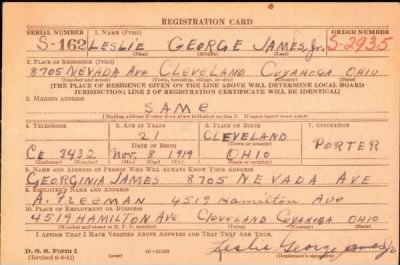 REGISTRATION CARD
SERIAL NUMBER 1. NAME (Print) ORDER NUMBER
S-162 LESLIE GEORGE JAMES, Jr. S-2935
2. PLACE OF RESIDENCE (Print)
8705 NEVADA AVE CLEVELAND CUYAHOGA OHIO
[THE PLACE OF RESIDENCE GIVEN ON THE LINE ABOVE WILL DETERMINE LOCAL BOARD
JURISDICTION; LINE 2 OF REGISTRATION CERTIFICATE WILL BE IDENTICAL]
3. MAILING ADDRESS
SAME
[Mailing address if other than place indicated on line 2. If same insert word same]
4. TELEPHONE 5. AGE IN YEARS 6. PLACE OF BIRTH 7. OCCUPATION
21 CLEVELAND
DATE OF BIRTH PORTER
CE 3432 Nov. 8 1919 OHIO
8. NAME AND ADDRESS OF PERSON WHO WILL ALWAYS KNOW YOUR ADDRESS
GEORGINIA JAMES 8705 NEVADA AVE
9. EMPLOYER'S NAME AND ADDRESS
A. 4519 Hamilton Ave
10. PLACE OF EMPLOYMENT OR BUSINESS
4519 HAMILTON AVE CLEVELAND CUYAHOGA OHIO
I AFFIRM THAT I HAVE VERIFIED ABOVE ANSWERS AND THAT THEY ARE TRUE.
D. S. S. Form 1
(Revised 6-9-41) (over) Leslie George James Jr
(Registrant's signature)